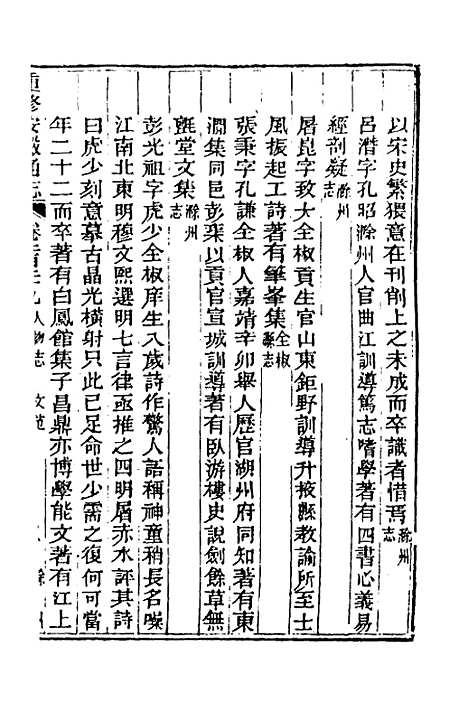 以宋史繁猥意在刊削上之未成而卒識者惜焉滁州志
呂濳字孔昭滁州人官曲江訓導篤志嗜學著有四書心義易
經剖疑滁州志
屠崑字致大全椒貢生官山東鉅野訓導升掖縣教諭所至士
風振起工詩著有筆峯集全椒縣志
張秉字孔謙全椒人嘉靖辛卯舉人歷官湖州府同知著有東
澗集同邑彭渠以貢官宣城訓導著有臥游樓史說劍餘草無
甡堂文集滁州志
彭光祖字虎少全椒庠生八歲詩作驚人語稱神童稍長名噪
江南北東明穆文熙選明七言律亟推之四明屠赤水評其詩
曰虎少刻意慕古晶光橫射只此已足命世少需之復何可當
年二十二而卒著有白鳳館集子昌鼎亦博學能文著有江上
重修安徽通志 卷 人物志 文苑